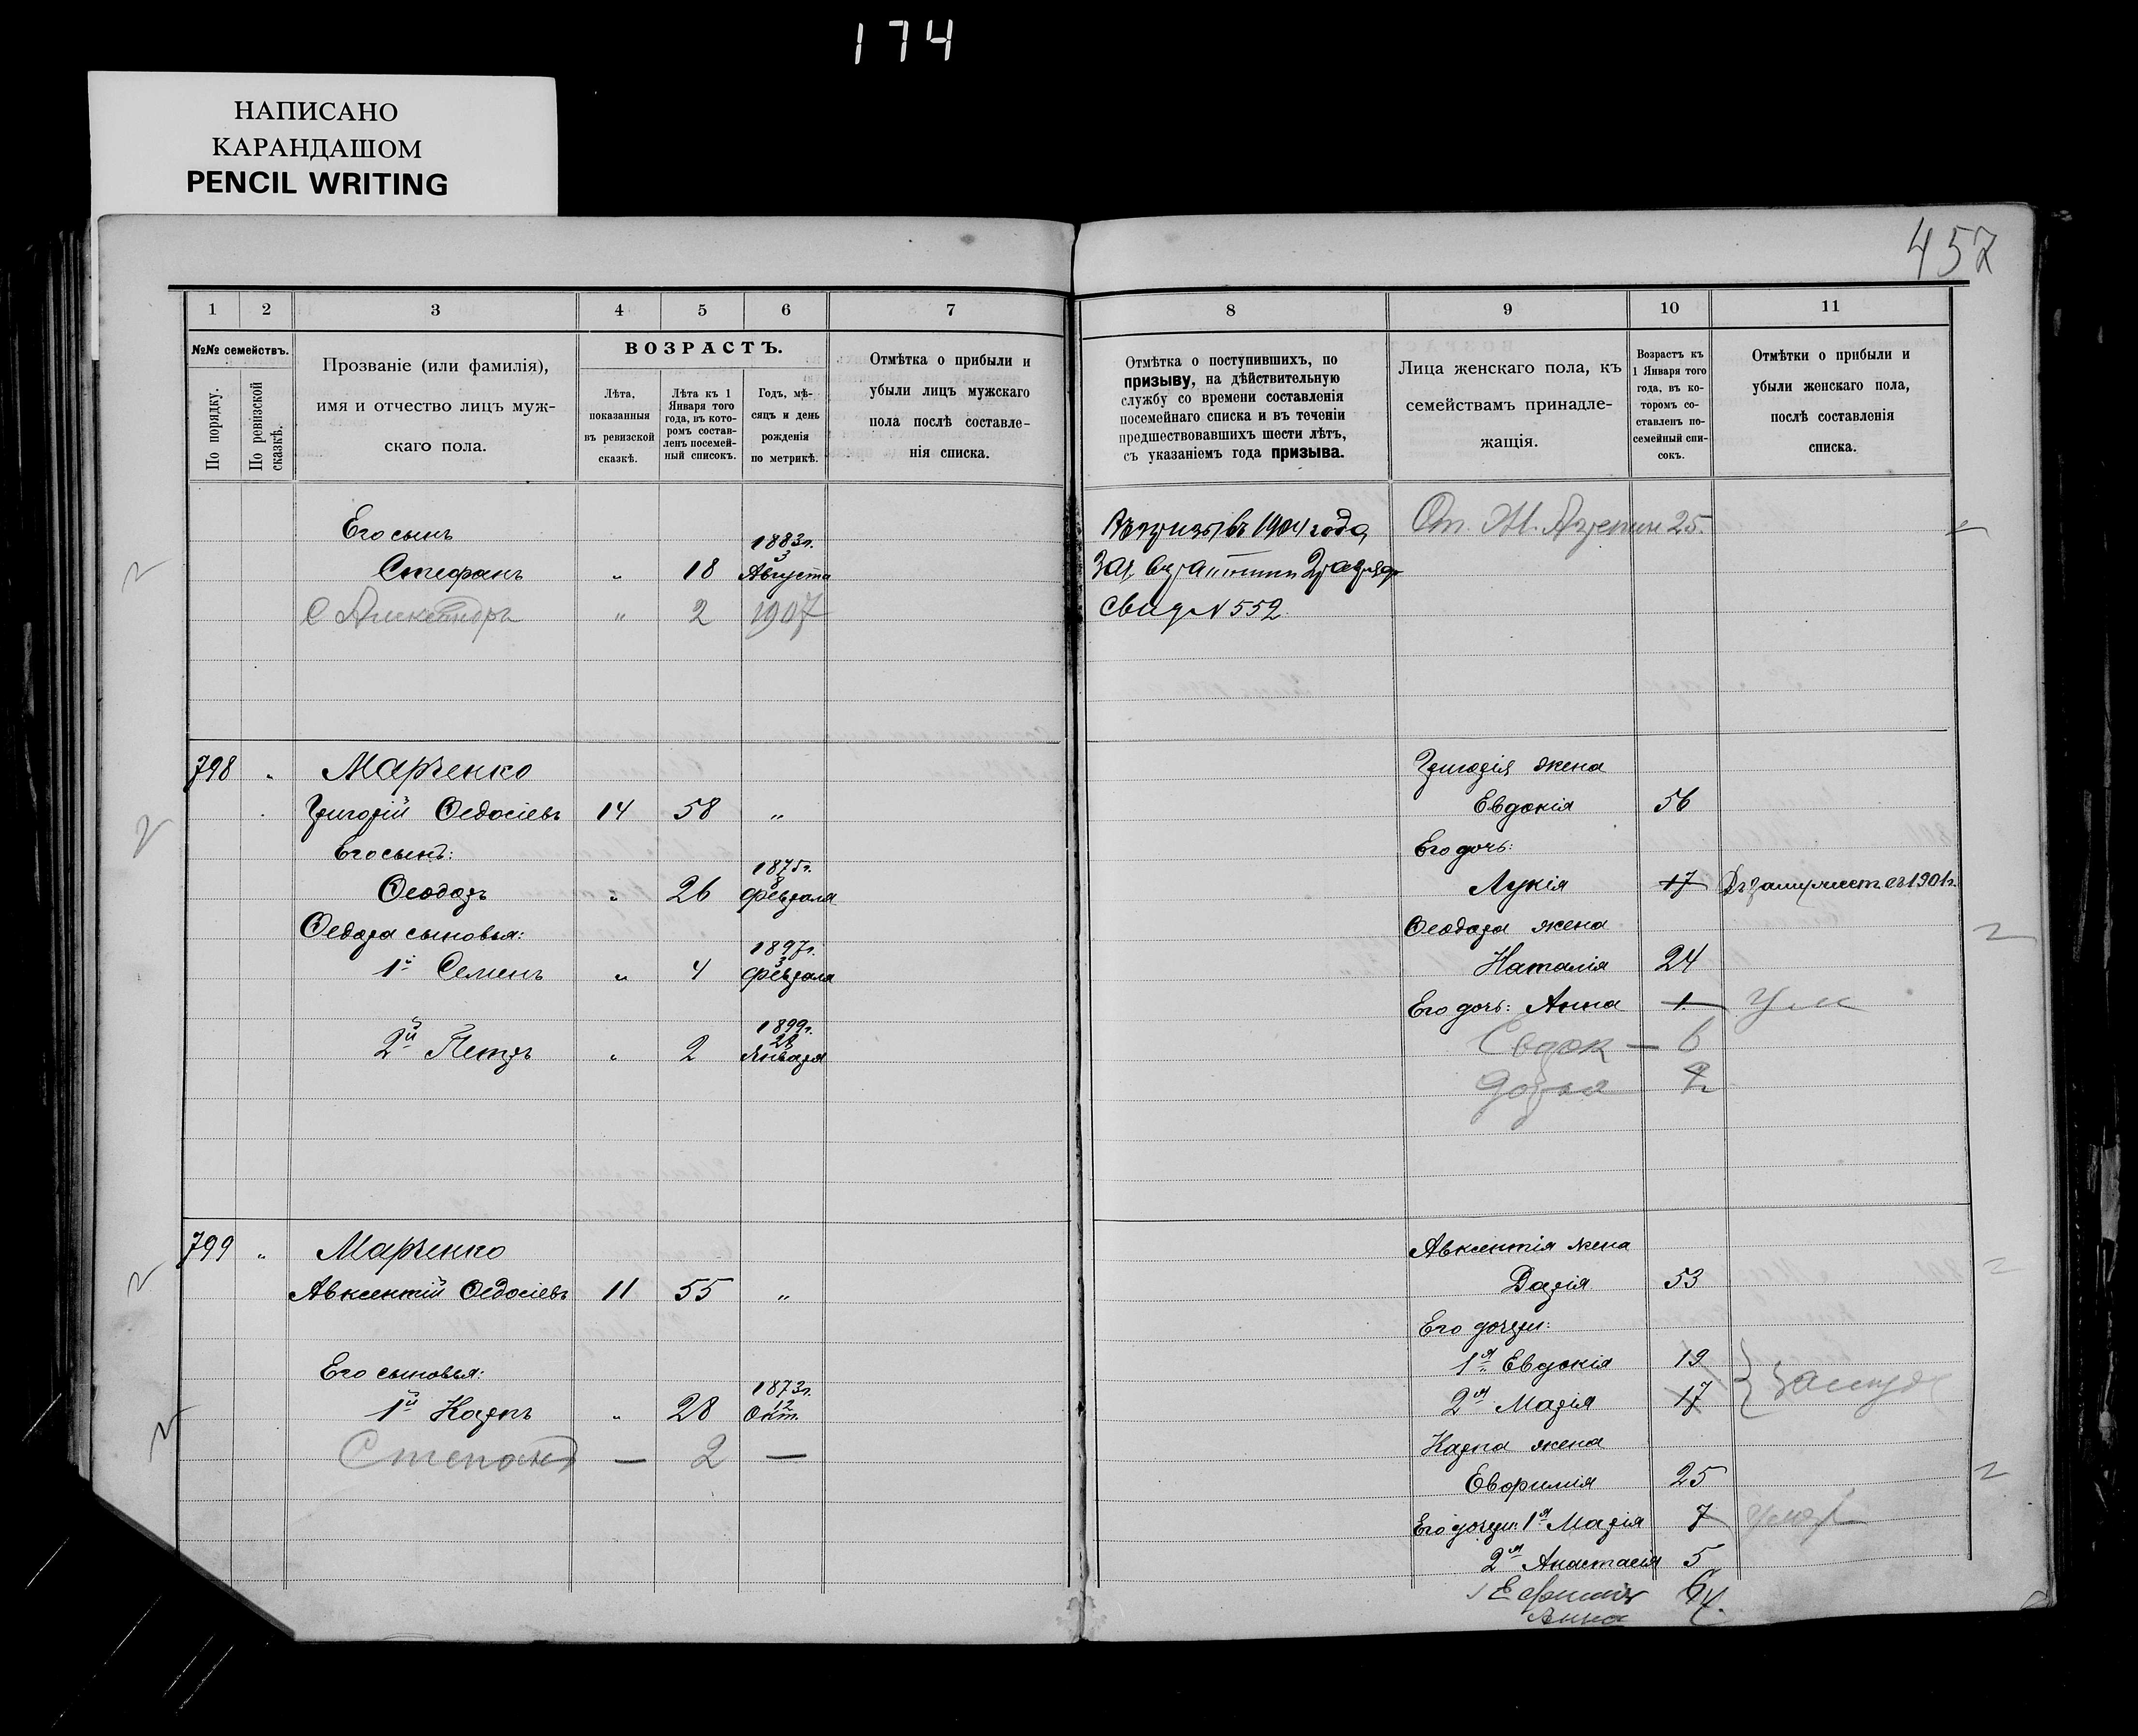 174
НАПИСАНО
КАРАНДАШОМ
PENCIL WRITING
457
1 2 3 4 5 6 7
№№ семействъ.
По порядку.
По ревизской сказкѣ.
Прозваніе (или фамилія),
имя и отчество лицъ муж-
скаго пола.
ВОЗРАСТЪ.
Лѣта,
показанныя
въ ревизской
сказкѣ.
Лѣта къ 1
Января того
года, въ кото-
ромъ состав-
ленъ посемей-
ный списокъ.
Годъ, мѣ-
сяцъ и день
рожденія
по метрикѣ.
Отмѣтка о прибыли и
убыли лицъ мужскаго
пола послѣ составле-
нія списка.
Его сынъ
1883г.
3
Стефанъ " 18 Августа
С Александръ " 2 1907
798 " Марченко
Григорій Ѳедосіевъ 14 58 "
Его сынъ:
1875г.
8
Ѳеодоръ " 26 февраля
Ѳедора сыновья:
1897г.
3
1й Семенъ " 4 февраля
1899г.
28
2й Петръ " 2 Января
799 " Марченко
Авксентій Ѳедосіевъ 11 55 "
Его сыновья:
1873г.
12
1й Карпъ " 28 Окт.
Степанъ — 2 —
8 9 10 11
Отмѣтка о поступившихъ, по
призыву, на дѣйствительную
службу со времени составленія
посемейнаго списка и въ теченіи
предшествовавшихъ шести лѣтъ,
съ указаніемъ года призыва.
Лица женскаго пола, къ
семействамъ принадле-
жащія.
Возрастъ къ
1 Января того
года, въ ко-
торомъ со-
ставленъ по-
семейный спи-
сокъ.
Отмѣтки о прибыли и
убыли женскаго пола,
послѣ составленія
списка.
въ 1904 года 25.
2 разряда
Свид № 552
Григорія жена
Евдокія 56
Его дочь:
Лукія 17 Въ замужест. съ 1901г.
Ѳеодора жена
Наталія 24
Его дочь: Анна 1. Ум
Евдок — 6
2
Авксентія жена
Дарія 53
Его дочери:
1я Евдокія 19
2я Марія 17
Замуж
Карпа жена
Евфимія 25
Его дочери: 1я Марія 7 Умер
2я Анастасія 5
Анна 4.